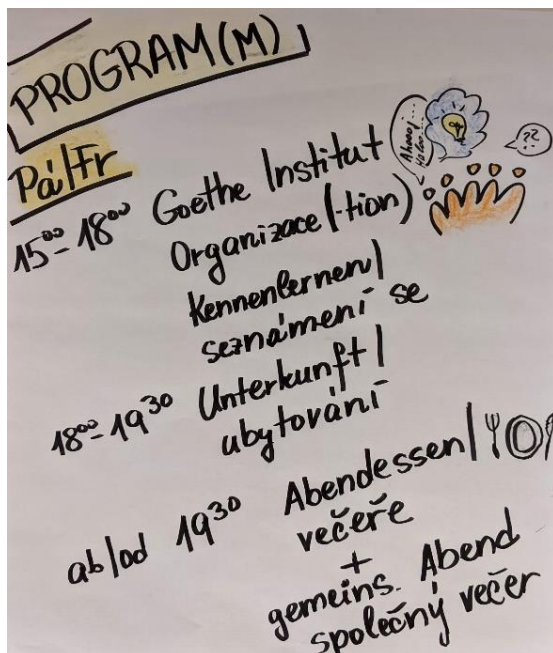 PROGRAM(M)
Pá/Fr
15⁰⁰- 18⁰⁰ Goethe Institut
Organizace(-tion)
Kennenlernen/
seznámení se
18⁰⁰- 19³⁰ Unterkunft/
ubytování
ab/od 19³⁰ Abendessen/
večeře
+
gemeins. Abend
společný večer
Ahooj
??